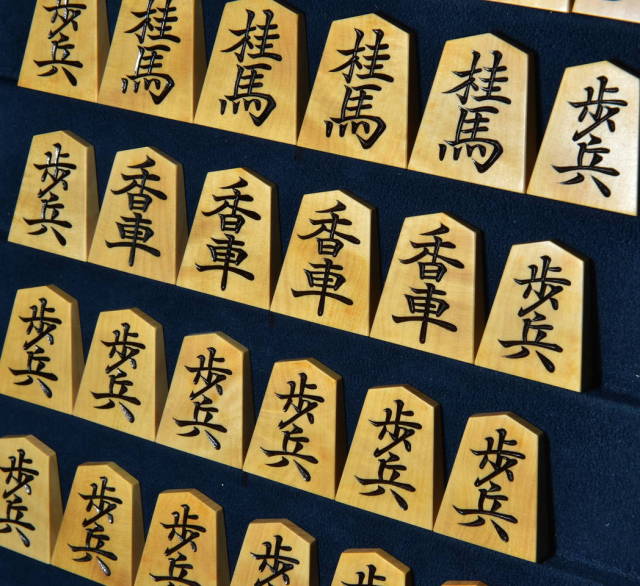 歩兵 桂馬 桂馬 桂馬 桂馬 歩兵
歩兵 香車 香車 香車 香車 歩兵
歩兵 歩兵 歩兵 歩兵 歩兵 歩兵
歩兵 歩兵 歩兵 歩兵 歩